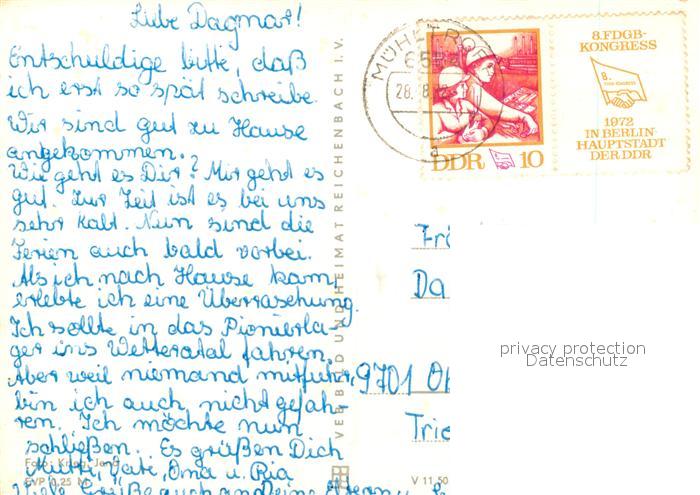 Liebe Dagmar!
Entschuldige bitte, daß
ich erst so spät schreibe.
Wir sind gut zu Hause
angekommen.
Wie geht es Dir? Mir geht es
gut. Zur Zeit ist es bei uns
sehr kalt. Nun sind die
Ferien auch bald vorbei.
Als ich nach Hause kam,
erlebte ich eine Überraschung.
Ich sollte in das Pionierla-
ger ins Wetteratal fahren.
Aber weil niemand mitfuhr,
bin ich auch nicht gefah-
ren. Ich möchte nun
schließen. Es grüßen Dich
Mutti, Vati, Oma u. Ria
Viele Grüße auch an Deine Eltern u.
Foto:
EVP 0,25 M
VERLAG BILD UND HEIMAT REICHENBACH I. V.
V 11 50
MÜHLTROFF
28. 8.
a
DDR 10
8. FDGB-
KONGRESS
8.
FDGB-KONGRESS
1972
IN BERLIN
HAUPTSTADT
DER DDR
Da
9701
Trie
privacy protection
Datenschutz